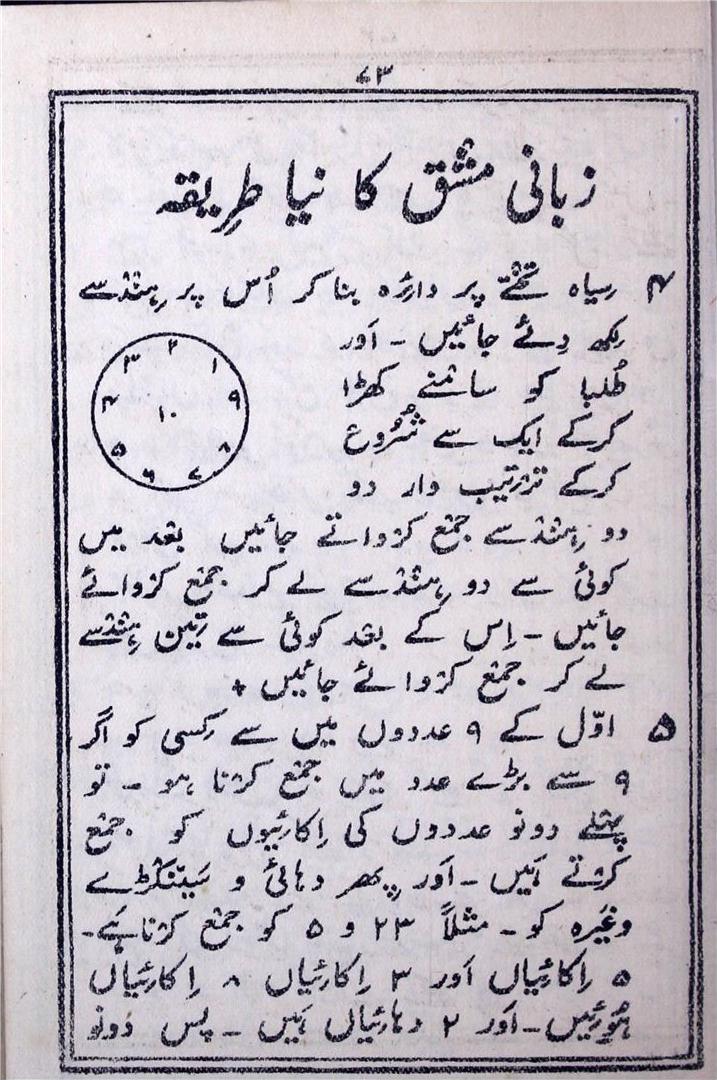 ۷۳
زبانی مشق کا نیا طرِیقہ
۴ سِیاہ تختے پر دائرہ بنا کر اُس پر ہِندسے
لِکھ دِئے جائیں - اَور
طُلبا کو سامنے کھڑا
کرکے ایک سے شُرُوع
کرکے ترتیب وار دو
۱
۲
۳
۴
۵
۶
۷
۸
۹
۱۰
دو ہِندسے جمع کروائے جائیں بعد میں
کوئی سے دو ہِندسے لے کر جمع کروائے
جائیں - اِس کے بعد کوئی سے تِین ہِندسے
لے کر جمع کروائے جائیں +
۵ اوّل کے ۹ عددوں میں سے کِسی کو اگر
۹ سے بڑے عدد میں جمع کرنا ہو - تو
پہلے دونو عددوں کی اِکائیوں کو جمع
کرتے ہَیں - اَور پِھر دہائی و سَینکڑے
وغَیرہ کو - مثلاً ۲۳ و ۵ کو جمع کرنا ہَے -
۵ اِکائیاں اَور ۳ اِکائیاں ۸ اِکائیاں
ہُوئیں - اَور ۲ دہائیاں ہَیں - پس دونو